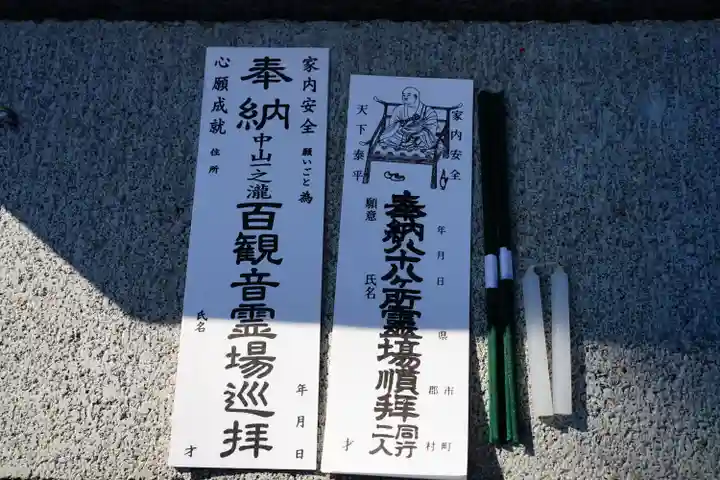 家内安全 願いごと為
奉納中山一之瀧百観音霊場巡拝
心願成就
住所
氏名
年月日
才
家内安全
天下泰平
奉納八十八ヶ所霊場順拝 同行二人
願意
氏名
年月日
県
市
郡
町
村
才